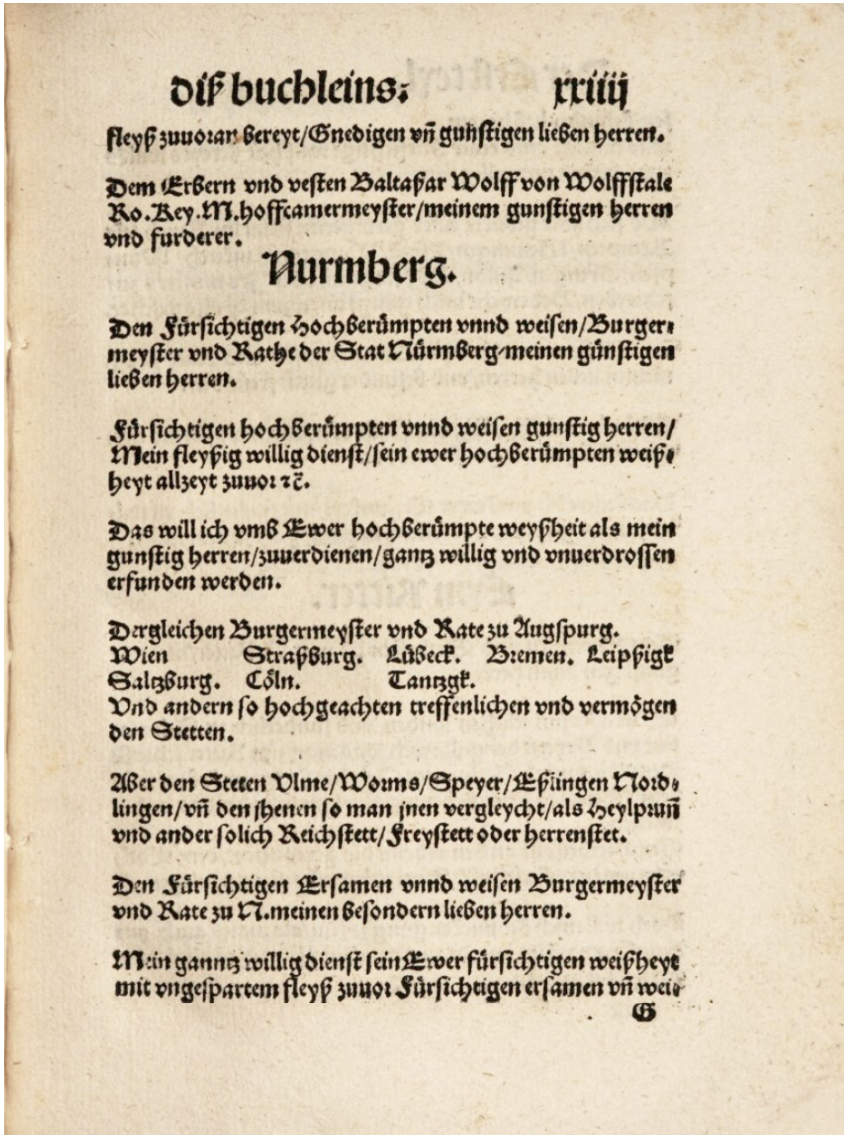 diß buchleins. xxiiij
fleyß zuuoran bereyt/Gnedigen vñ gunstigen lieben herren.
Dem Erbern vnd vesten Baltaßar Wolff von Wolffstale
Ro.Key.M.hoffcamermeyster/meinem gunstigen herren
vnd furderer.
Nurmberg.
Den Fürsichtigen Hochberümpten vnnd weisen/Burger⸗
meyster vnd Rathe der Stat Nürmberg/meinen günstigen
lieben herren.
Fürsichtigen hochberümpten vnnd weisen gunstig herren/
Mein fleyßig willig dienst/sein ewer hochberümpten weiß⸗
heyt allzeyt zuuor ⁊c̄.
Das will ich vmb Ewer hochberümpte weyßheit als mein
gunstig herren/zuuerdienen/gantz willig vnd vnuerdrossen
erfunden werden.
Dergleichen Burgermeyster vnd Rate zu Augspurg.
Wien Straßburg. Lübeck. Bremen. Leipßigk
Saltzburg. Cöln. Tantzgk.
Vnd andern so hochgeachten treffenlichen vnd vermögen
den Stetten.
Aber den Steten Vlme/Worms/Speyer/Eßlingen Nord⸗
lingen/vñ den jhenen so man jnen vergleycht/als Heylprun̄
vnd ander solich Reichstett/Freystett oder herrenstet.
Den Fürsichtigen Ersamen vnnd weisen Burgermeyster
vnd Rate zu N.meinen besondern lieben herren.
Mein ganntz willig dienst sein Ewer fürsichtigen weißheyt
mit vngespartem fleyß zuuor Fürsichtigen ersamen vñ wei⸗
G